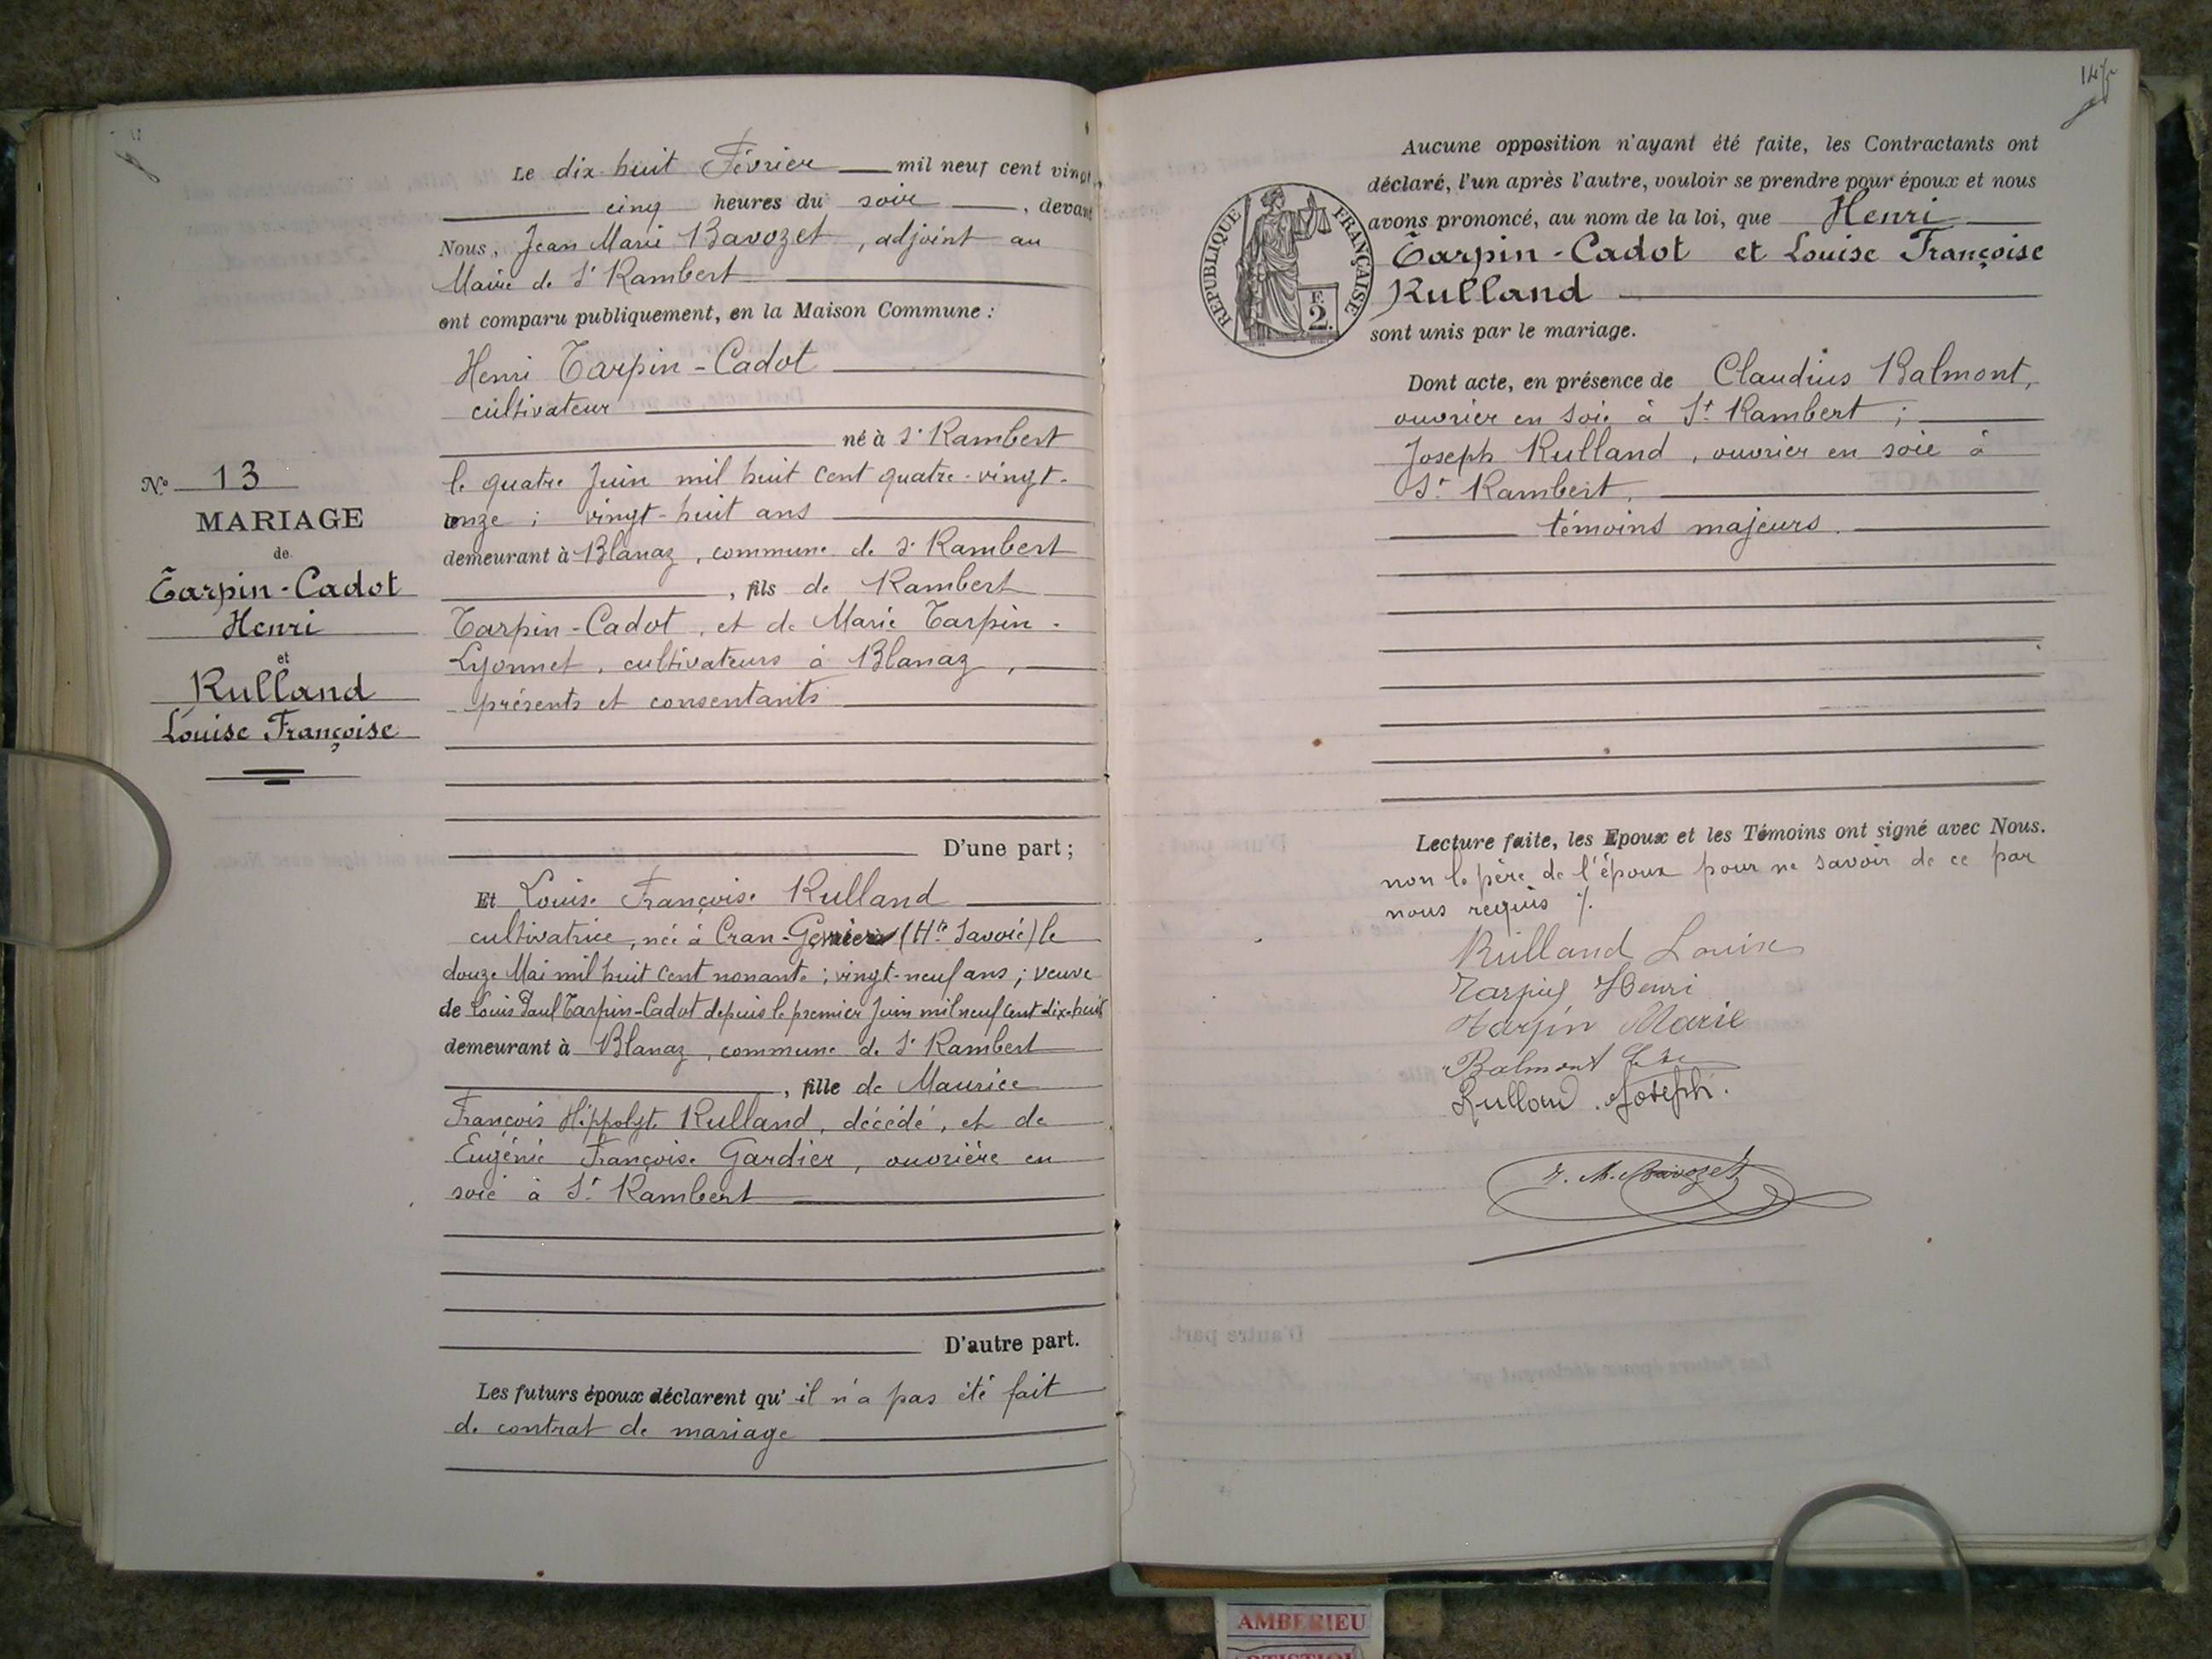 Le dix huit Février mil neuf cent vingt,
cinq heures du soir, devant
Nous, Jean Marie Bavozet, adjoint au
Maire de St Rambert
ont comparu publiquement, en la Maison Commune :
Henri Tarpin-Cadot
cultivateur
né à St Rambert
le quatre Juin mil huit cent quatre-vingt-
onze ; vingt-huit ans
demeurant à Blanaz, commune de St Rambert
, fils de Rambert
Tarpin-Cadot, et de Marie Tarpin-
Lyonnet, cultivateurs à Blanaz,
présents et consentants
D'une part ;
Et Louise Françoise Rulland
cultivatrice, née à Cran-Gevrier (Hte Savoie) le
douze Mai mil huit cent nonante ; vingt-neuf ans ; veuve
de Louis Paul Tarpin-Cadot depuis le premier Juin mil neuf cent dix-huit
demeurant à Blanaz, commune de St Rambert
, fille de Maurice
François Hippolyte Rulland, décédé, et de
Eugénie Françoise Gardier, ouvrière en
soie à St Rambert
D'autre part.
Les futurs époux déclarent qu'il n'a pas été fait
de contrat de mariage
No 13
MARIAGE
de
Tarpin-Cadot
Henri
et
Rulland
Louise Françoise
Aucune opposition n'ayant été faite, les Contractants ont
déclaré, l'un après l'autre, vouloir se prendre pour époux et nous
avons prononcé, au nom de la loi, que Henri
Tarpin-Cadot et Louise Françoise
Rulland
sont unis par le mariage.
REPUBLIQUE FRANÇAISE
F.
2.
Dont acte, en présence de Claudius Balmont,
ouvrier en soie à St Rambert ;
Joseph Rulland, ouvrier en soie à
St Rambert,
témoins majeurs.
Lecture faite, les Epoux et les Témoins ont signé avec Nous.
non le père de l'époux pour ne savoir de ce par
nous requis ./.
Rulland Louise
Tarpin Henri
Tarpin Marie
Balmont
Rulland Joseph.
J. M. Bavozet
AMBERIEU